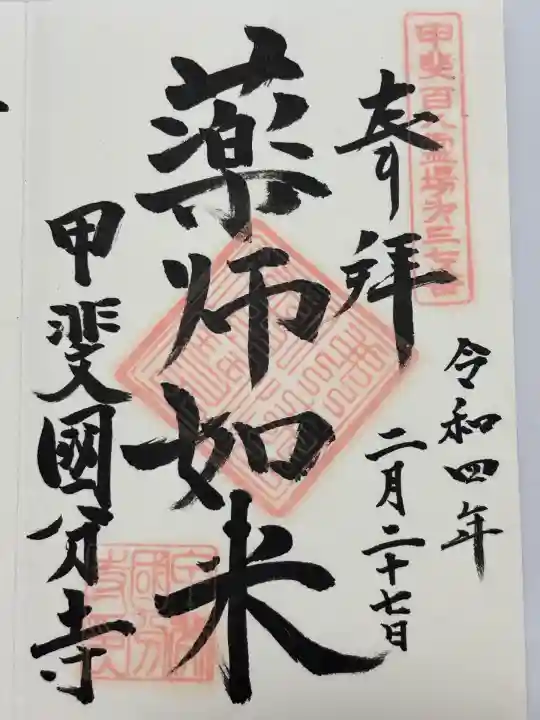 甲斐百八霊場第三十七番
奉拝
令和四年
二月二十七日
薬师如来
甲斐國分寺